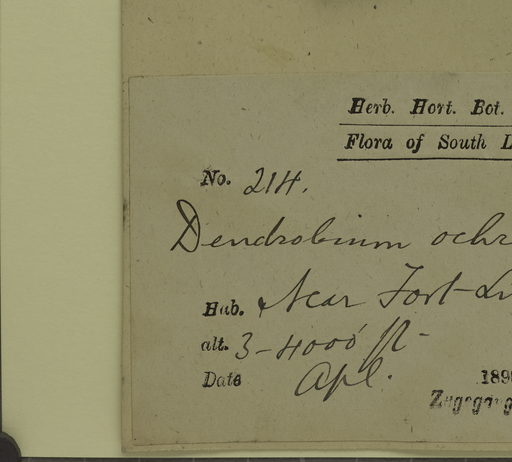 Herb. Hort. Bot.
Flora of South L
No. 214.
Dendrobium ochr
Hab. Near Fort-
alt. 3-4000' ft-
Date Apl. 189